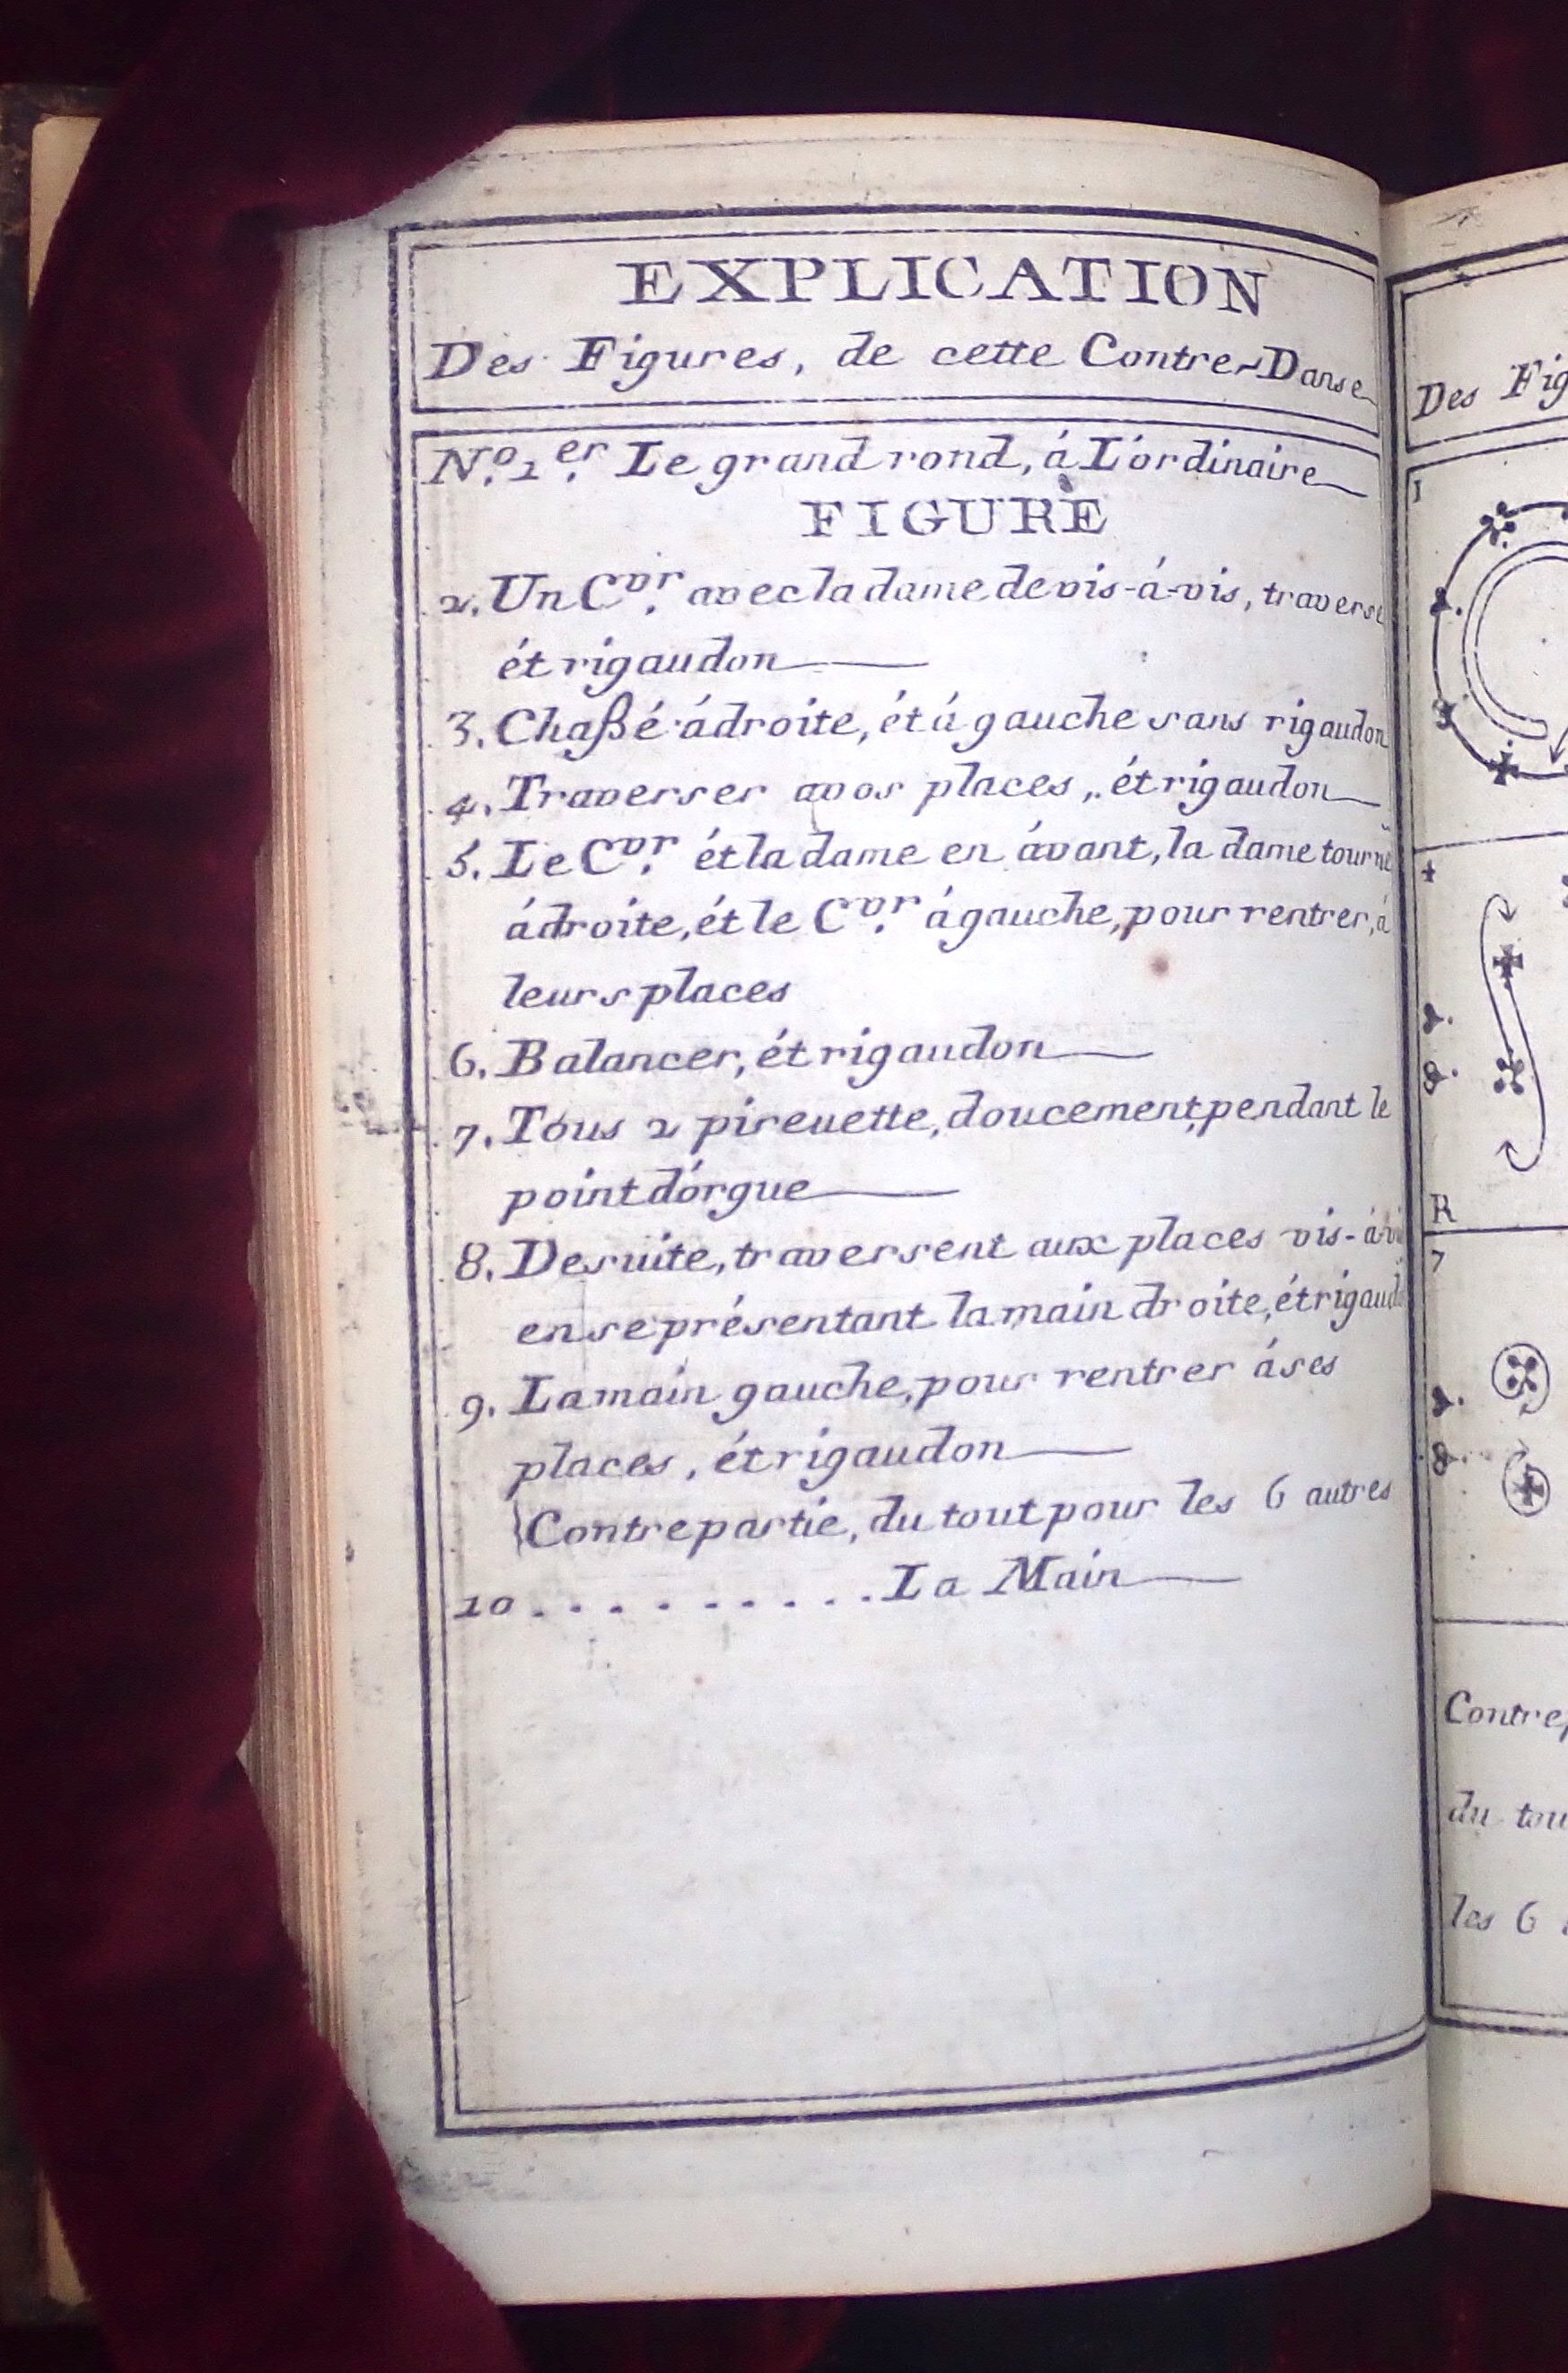 EXPLICATION
Des Figures, de cette Contre-Danse
N.º 1.er Le grand rond, á L'ordinaire
FIGURE
2. Un C.vr avec la dame de vis-á-vis, traverse
ét rigaudon
3. Chaßé á droite, ét á gauche sans rigaudon
4. Traverser a vos places, ét rigaudon
5. Le C.vr ét la dame en ávant, la dame tourne
á droite, ét le C.vr á gauche, pour rentrer, á
leurs places
6. Balancer, ét rigaudon
7. Tous 2 pireuette, doucement, pendant le
point d'órgue
8. De suite, traversent aux places vis-á-vis
en se présentant la main droite, ét rigaud
9. La main gauche, pour rentrer á ses
places, ét rigaudon
Contrepartie, du tout pour les 6 autres
10 . . . . . . . . . La Main
Des Fig
1
4
R
7
Contrep
du tou
les 6